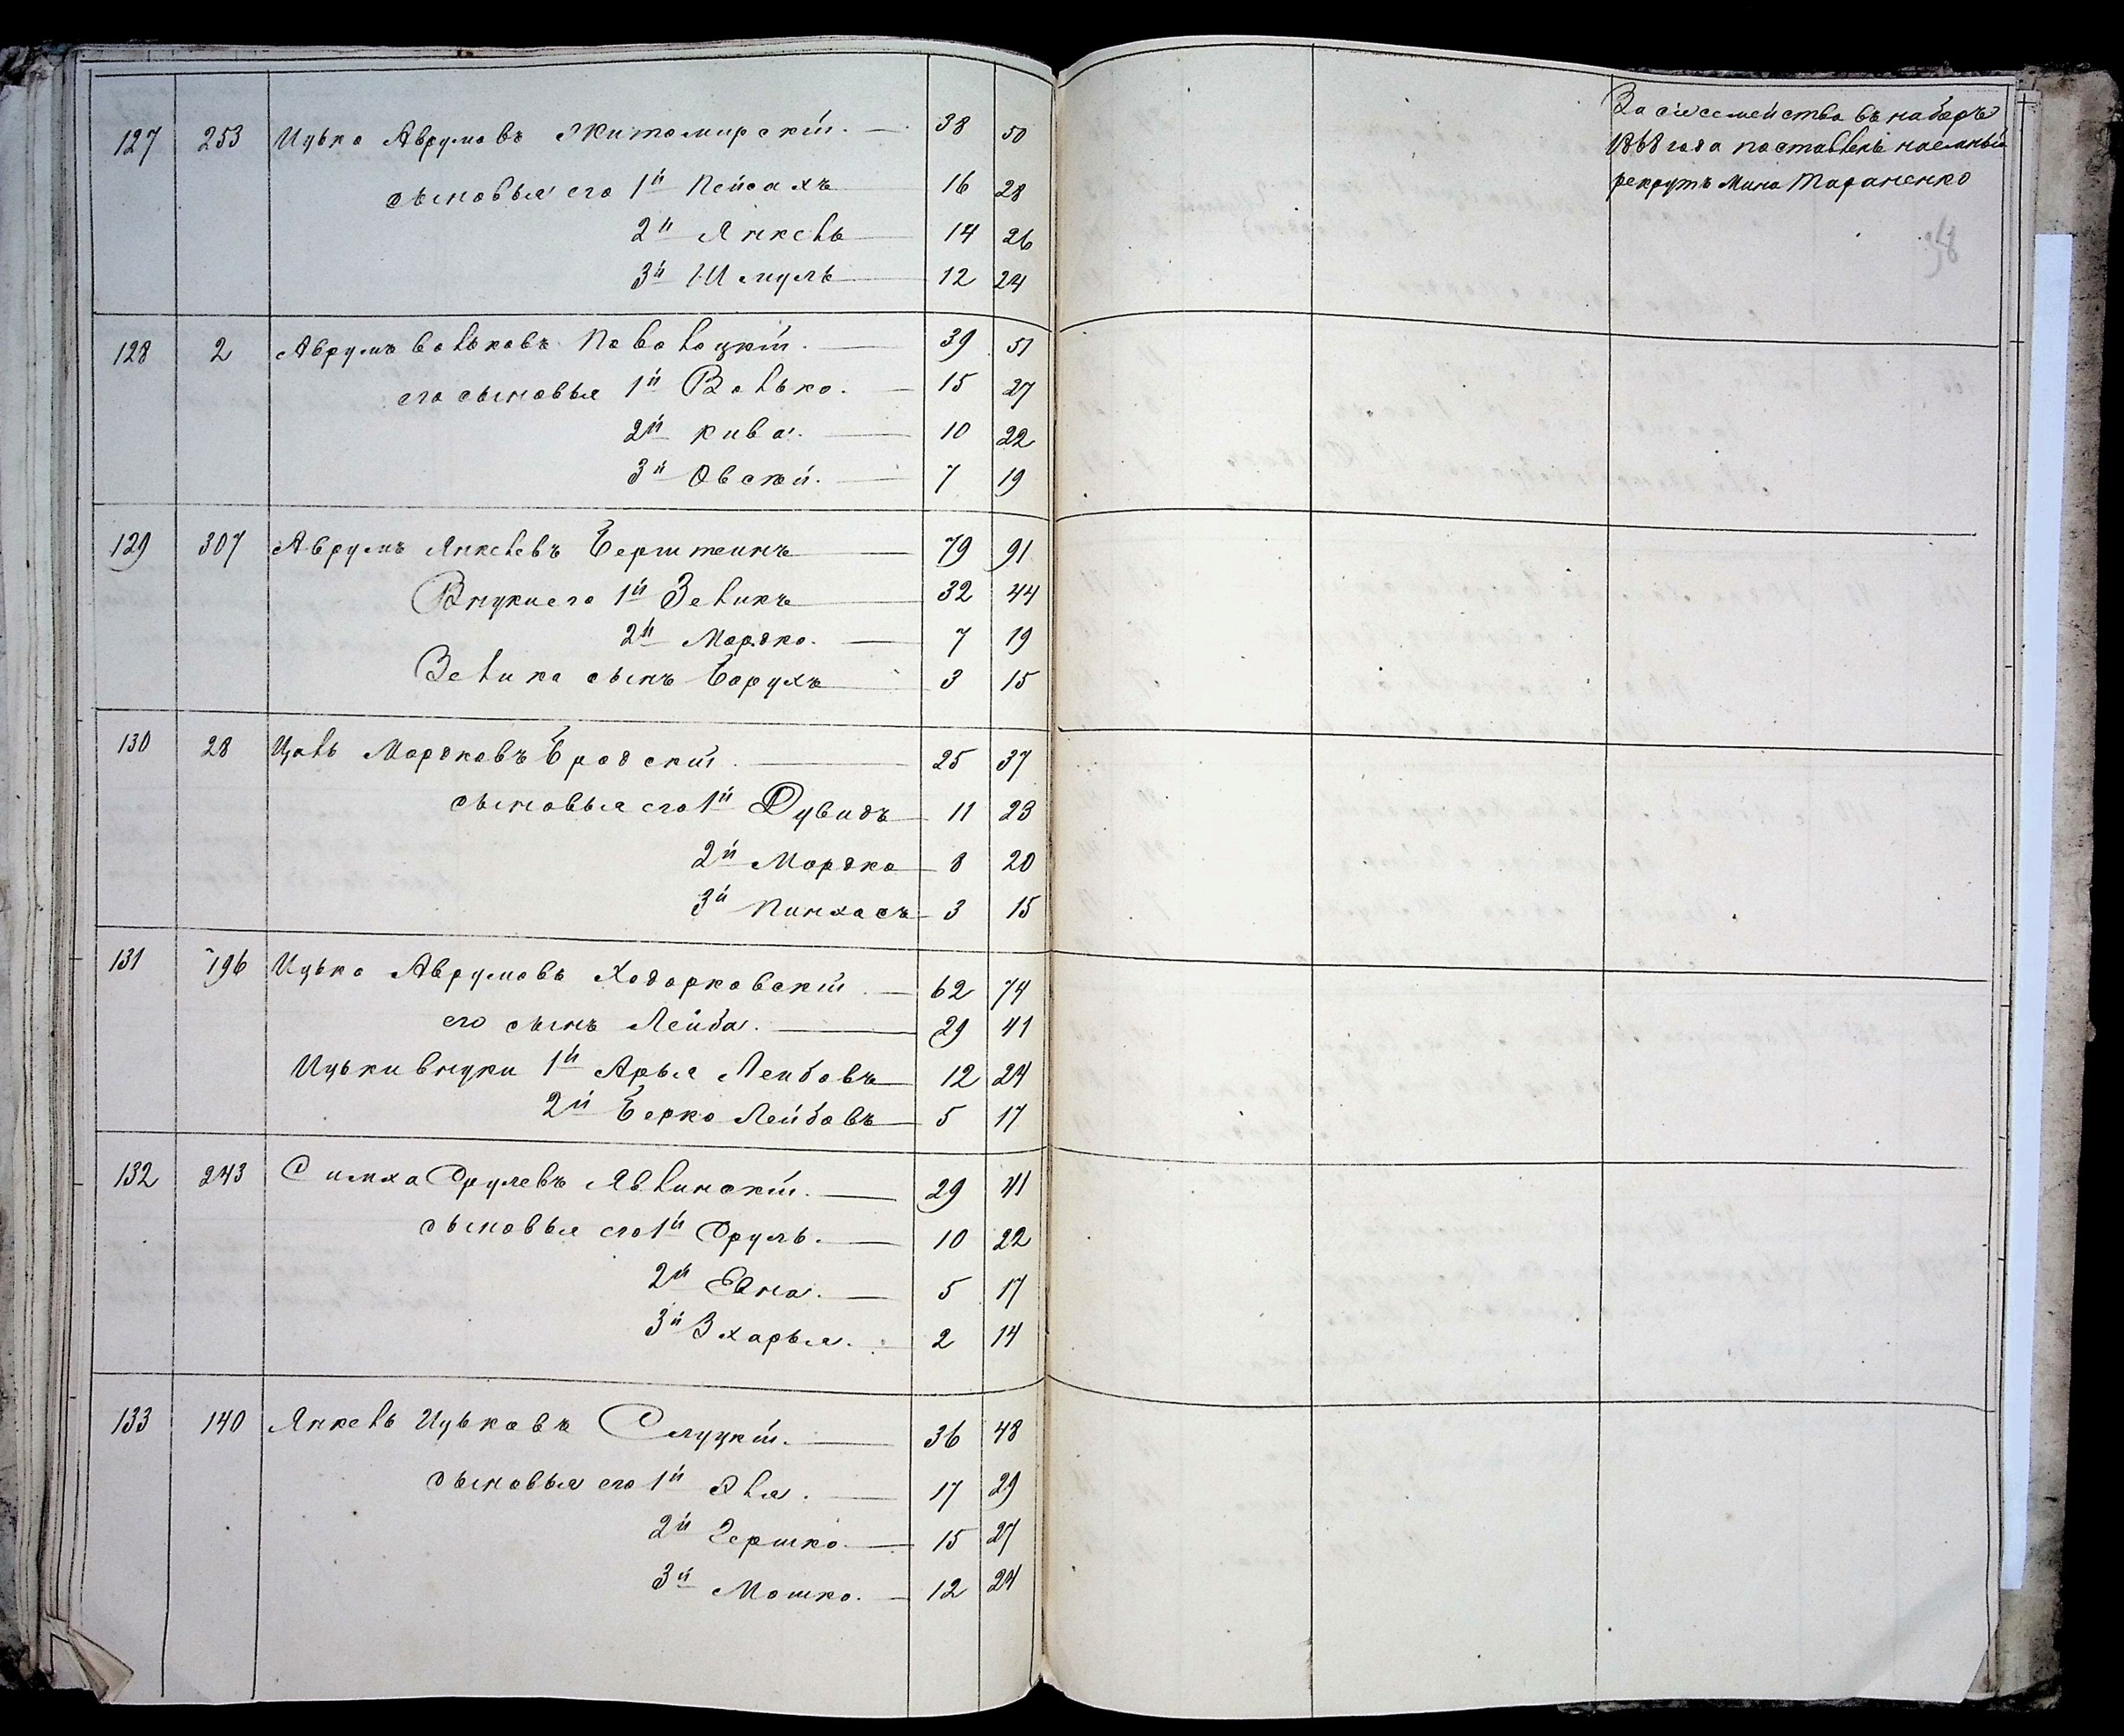 127 253 Ицько Аврумовъ Житомирскій. 38 50
сыновья его 1й Пейсахъ 16 28
2й Янкель 14 26
3й Шмуль 12 24
128 2 Аврумъ Вольковъ Поволоцкій. 39 51
его сыновья 1й Волько. 15 27
2й Кива. 10 22
3й Овсѣй. 7 19
129 307 Аврумъ Янкелевъ Берштейнъ 79 91
Внуки его 1й Зеликъ 32 44
2й Мордко. 7 19
Зелика сынъ Борухъ 3 15
130 28 Цаль Мордковъ Бродскій. 25 37
сыновья его 1й Дувидъ 11 23
2й Мордко 8 20
3й Пинхасъ 3 15
131 196 Ицько Аврумовъ Ходорковскій. 62 74
его сынъ Лейба. 29 41
Ицьки внуки 1й Арья Лейбовъ 12 24
2й Берко Лейбовъ 5 17
132 243 Симха Срулевъ Явлинскій. 29 41
сыновья его 1й Сруль. 10 22
2й 5 17
3й Зхарья. 2 14
133 140 Янкель Ицьковъ Слуцкій. 36 48
сыновья его 1й Эля. 17 29
2й Гершко. 15 27
3й Мошко. 12 24
За сіе семейство въ наборъ
1868 года поставленъ наемный
рекрутъ Мина Тараненко